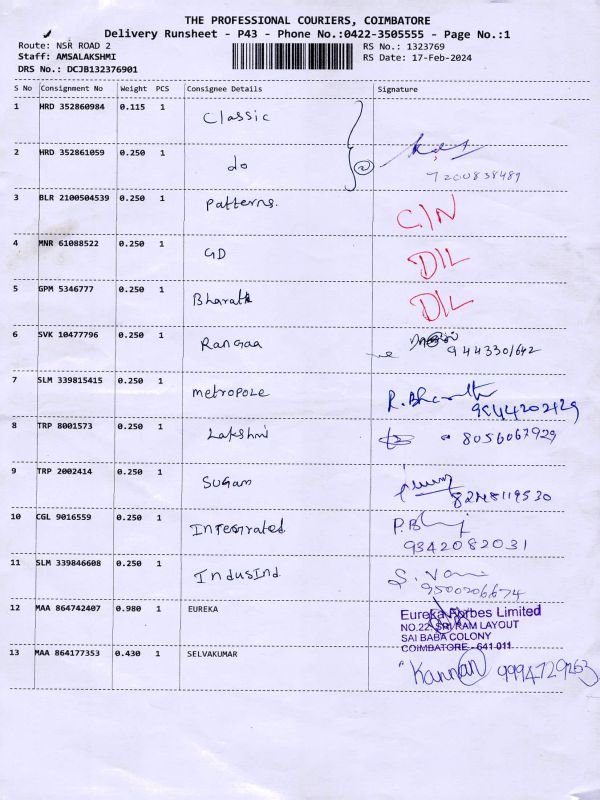 THE PROFESSIONAL COURIERS, COIMBATORE
Delivery Runsheet - P43 - Phone No.:0422-3505555 - Page No.:1
Route: NSR ROAD 2 RS No.: 1323769
Staff: AMSALAKSHMI RS Date: 17-Feb-2024
DRS No.: DCJB132376901
S No Consignment No Weight PCS Consignee Details Signature
1 HRD 352860984 0.115 1 Classic
2 HRD 352861059 0.250 1 do 2
7200838489
3 BLR 2100504539 0.250 1 Patterns. C/N
4 MNR 61088522 0.250 1 GD D/L
5 GPM 5346777 0.250 1 Bharath D/L
6 SVK 10477796 0.250 1 Rangaa
9443301642
7 SLM 339815415 0.250 1 metropole R. Bharath
9544202129
8 TRP 8001573 0.250 1 Lakshmi 8056067929
9 TRP 2002414 0.250 1 Sugam
8248119530
10 CGL 9016559 0.250 1 Integrated P.B
9342082031
11 SLM 339846608 0.250 1 IndusInd S.
9500206674
12 MAA 864742407 0.980 1 EUREKA Eureka Forbes Limited
NO.22, SRI RAM LAYOUT
SAI BABA COLONY
COIMBATORE - 641 011
13 MAA 864177353 0.430 1 SELVAKUMAR Kannan 9994729263